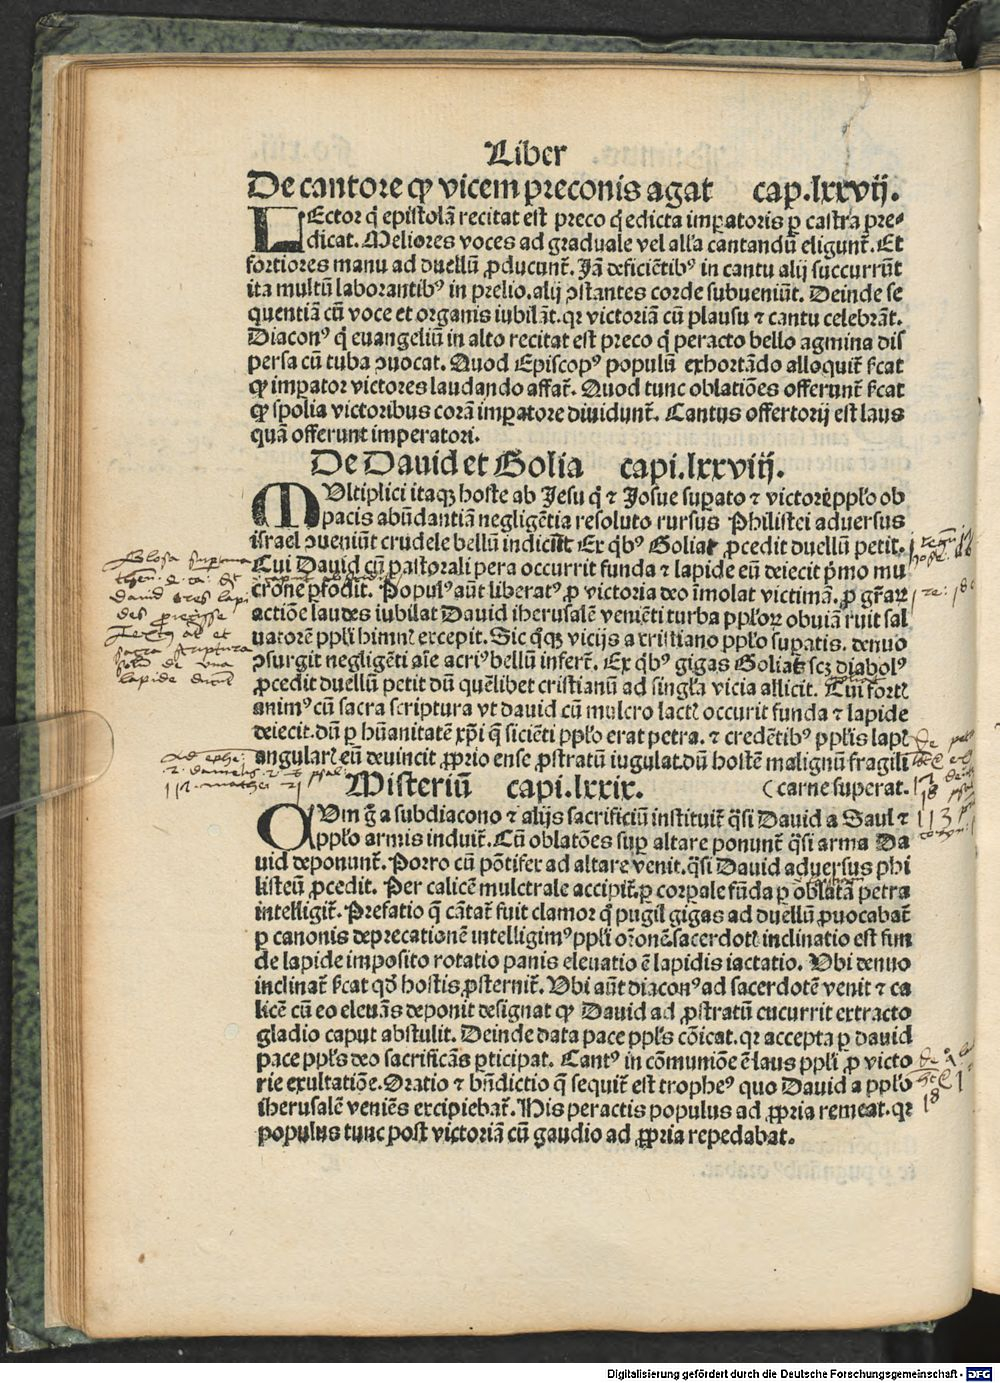 Liber
De cantore ꝙ vicem preconis agat cap. lxxvij.
LEctor q̃ epistolã recitat est preco q̃ edicta imꝑatoris ꝑ castra pre⸗
dicat. Meliores voces ad graduale vel alľa cantandũ eligunt̃. Et
fortiores manu ad duellũ ꝓducunt̃. Jã deficiẽtibꝰ in cantu alij succurrũt
ita multũ laborantibꝰ in prelio. alij ↄstantes corde subueniũt. Deinde se
quentiã cũ voce et organis iubilãt. qꝛ victoriã cũ plausu ⁊ cantu celebrãt.
Diaconꝰ q̃ euangeliũ in alto recitat est preco q̃ peracto bello agmina dis
persa cũ tuba ↄuocat. Quod Episcopꝰ populũ exhortãdo alloquit̃ ſcat
ꝙ imꝑator victores laudando affat̃. Quod tunc oblatiões offerunt̃ ſcat
ꝙ spolia victoribus corã imꝑatore diuidunt̃. Cantus offertorij est laus
quã offerunt imperatori.
De Dauid et Golia capi. lxxviij.
MUltiplici itaqꝫ hoste ab Jesu q̃ ⁊ Josue suꝑato ⁊ victore ppľo ob
pacis abũdantiã negligẽtia resoluto rursus Philistei aduersus
israel ↄueniũt crudele bellũ indicũt Ex q̃bꝰ Golias ꝓcedit duellũ petit.
Cui Dauid cũ pastorali pera occurrit funda ⁊ lapide eũ deiecit ṗmo mu
crone ꝑfodit. Populꝰ aũt liberatꝰ ꝓ victoria deo ĩmolat victimã. ꝓ gr̃aꝝ
actiõe laudes iubilat Dauid iherusalẽ veniẽti turba ppľoꝝ obuiã ruit sal
uatorẽ ppľi himnĩ excepit. Sic q̃qꝫ vicijs a cristiano ppľo suꝑatis. denuo
ↄsurgit negligẽti aĩe acriꝰ bellũ infert̃. Ex q̃bꝰ gigas Golias scꝫ diabolꝰ
ꝓcedit duellũ petit dũ quẽlibet cristianũ ad singľa vicia allicit. Cui fortꝭ
animꝰ cũ sacra scriptura vt dauid cũ mulcro lactꝭ occurit funda ⁊ lapide
deiecit. dũ ꝑ hũanitatẽ xp̃i q̃ siciẽti ppľo erat petra. ⁊ credẽtibꝰ ppľis lapꝭ
angularꝭ eũ deuincit ꝓprio ense ꝓstratũ iugulat. dũ hostẽ malignũ fragili
Misteriũ capi. lxxix. (carne superat.
QUm g̃ a subdiacono ⁊ alijs sacrificiũ instituit̃ q̃si Dauid a Saul ⁊
appľo armis induit̃. Cũ oblatões suꝑ altare ponunt̃ q̃si arma Da
uid deponunt̃. Porro cũ põtifer ad altare venit. q̃si Dauid aduersus phi
listeũ ꝓcedit. Per calicẽ mulctrale accipit̃. ꝑ corꝑale fũda ꝑ oblatã petra
intelligit̃. Prefatio q̃ cãtat̃ fuit clamor q̃ pugil gigas ad duellũ ꝓuocabat̃
ꝑ canonis deprecationẽ intelligimꝰ ppľi orõnẽ. sacerdotꝭ inclinatio est fun
de lapide imposito rotatio panis eleuatio ẽ lapidis iactatio. Ubi denuo
inclinat̃ ſcat qð hostis ꝓsternit̃. Ubi aũt diaconꝰ ad sacerdotẽ venit ⁊ ca
licẽ cũ eo eleuãs deponit designat ꝙ Dauid ad ꝓstratũ cucurrit extracto
gladio caput abstulit. Deinde data pace ppľs cõicat. qꝛ accepta ꝑ dauid
pace ppľs deo sacrificãs ꝑticipat. Cantꝰ in cõmuniõe ẽ laus ppľi ꝓ victo
rie exultatiõe. Oratio ⁊ bñdictio q̃ sequit̃ est tropheꝰ quo Dauid a ppľo
iherusalẽ veniẽs excipiebat̃. His peractis populus ad ꝓpria remeat. qꝛ
populus tunc post victoriã cũ gaudio ad ꝓpria repedabat.
Glosa
dauid tres lapi
des
et
sacra scriptura
de una
lapide
Digitalisierung gefördert durch die Deutsche Forschungsgemeinschaft - DFG